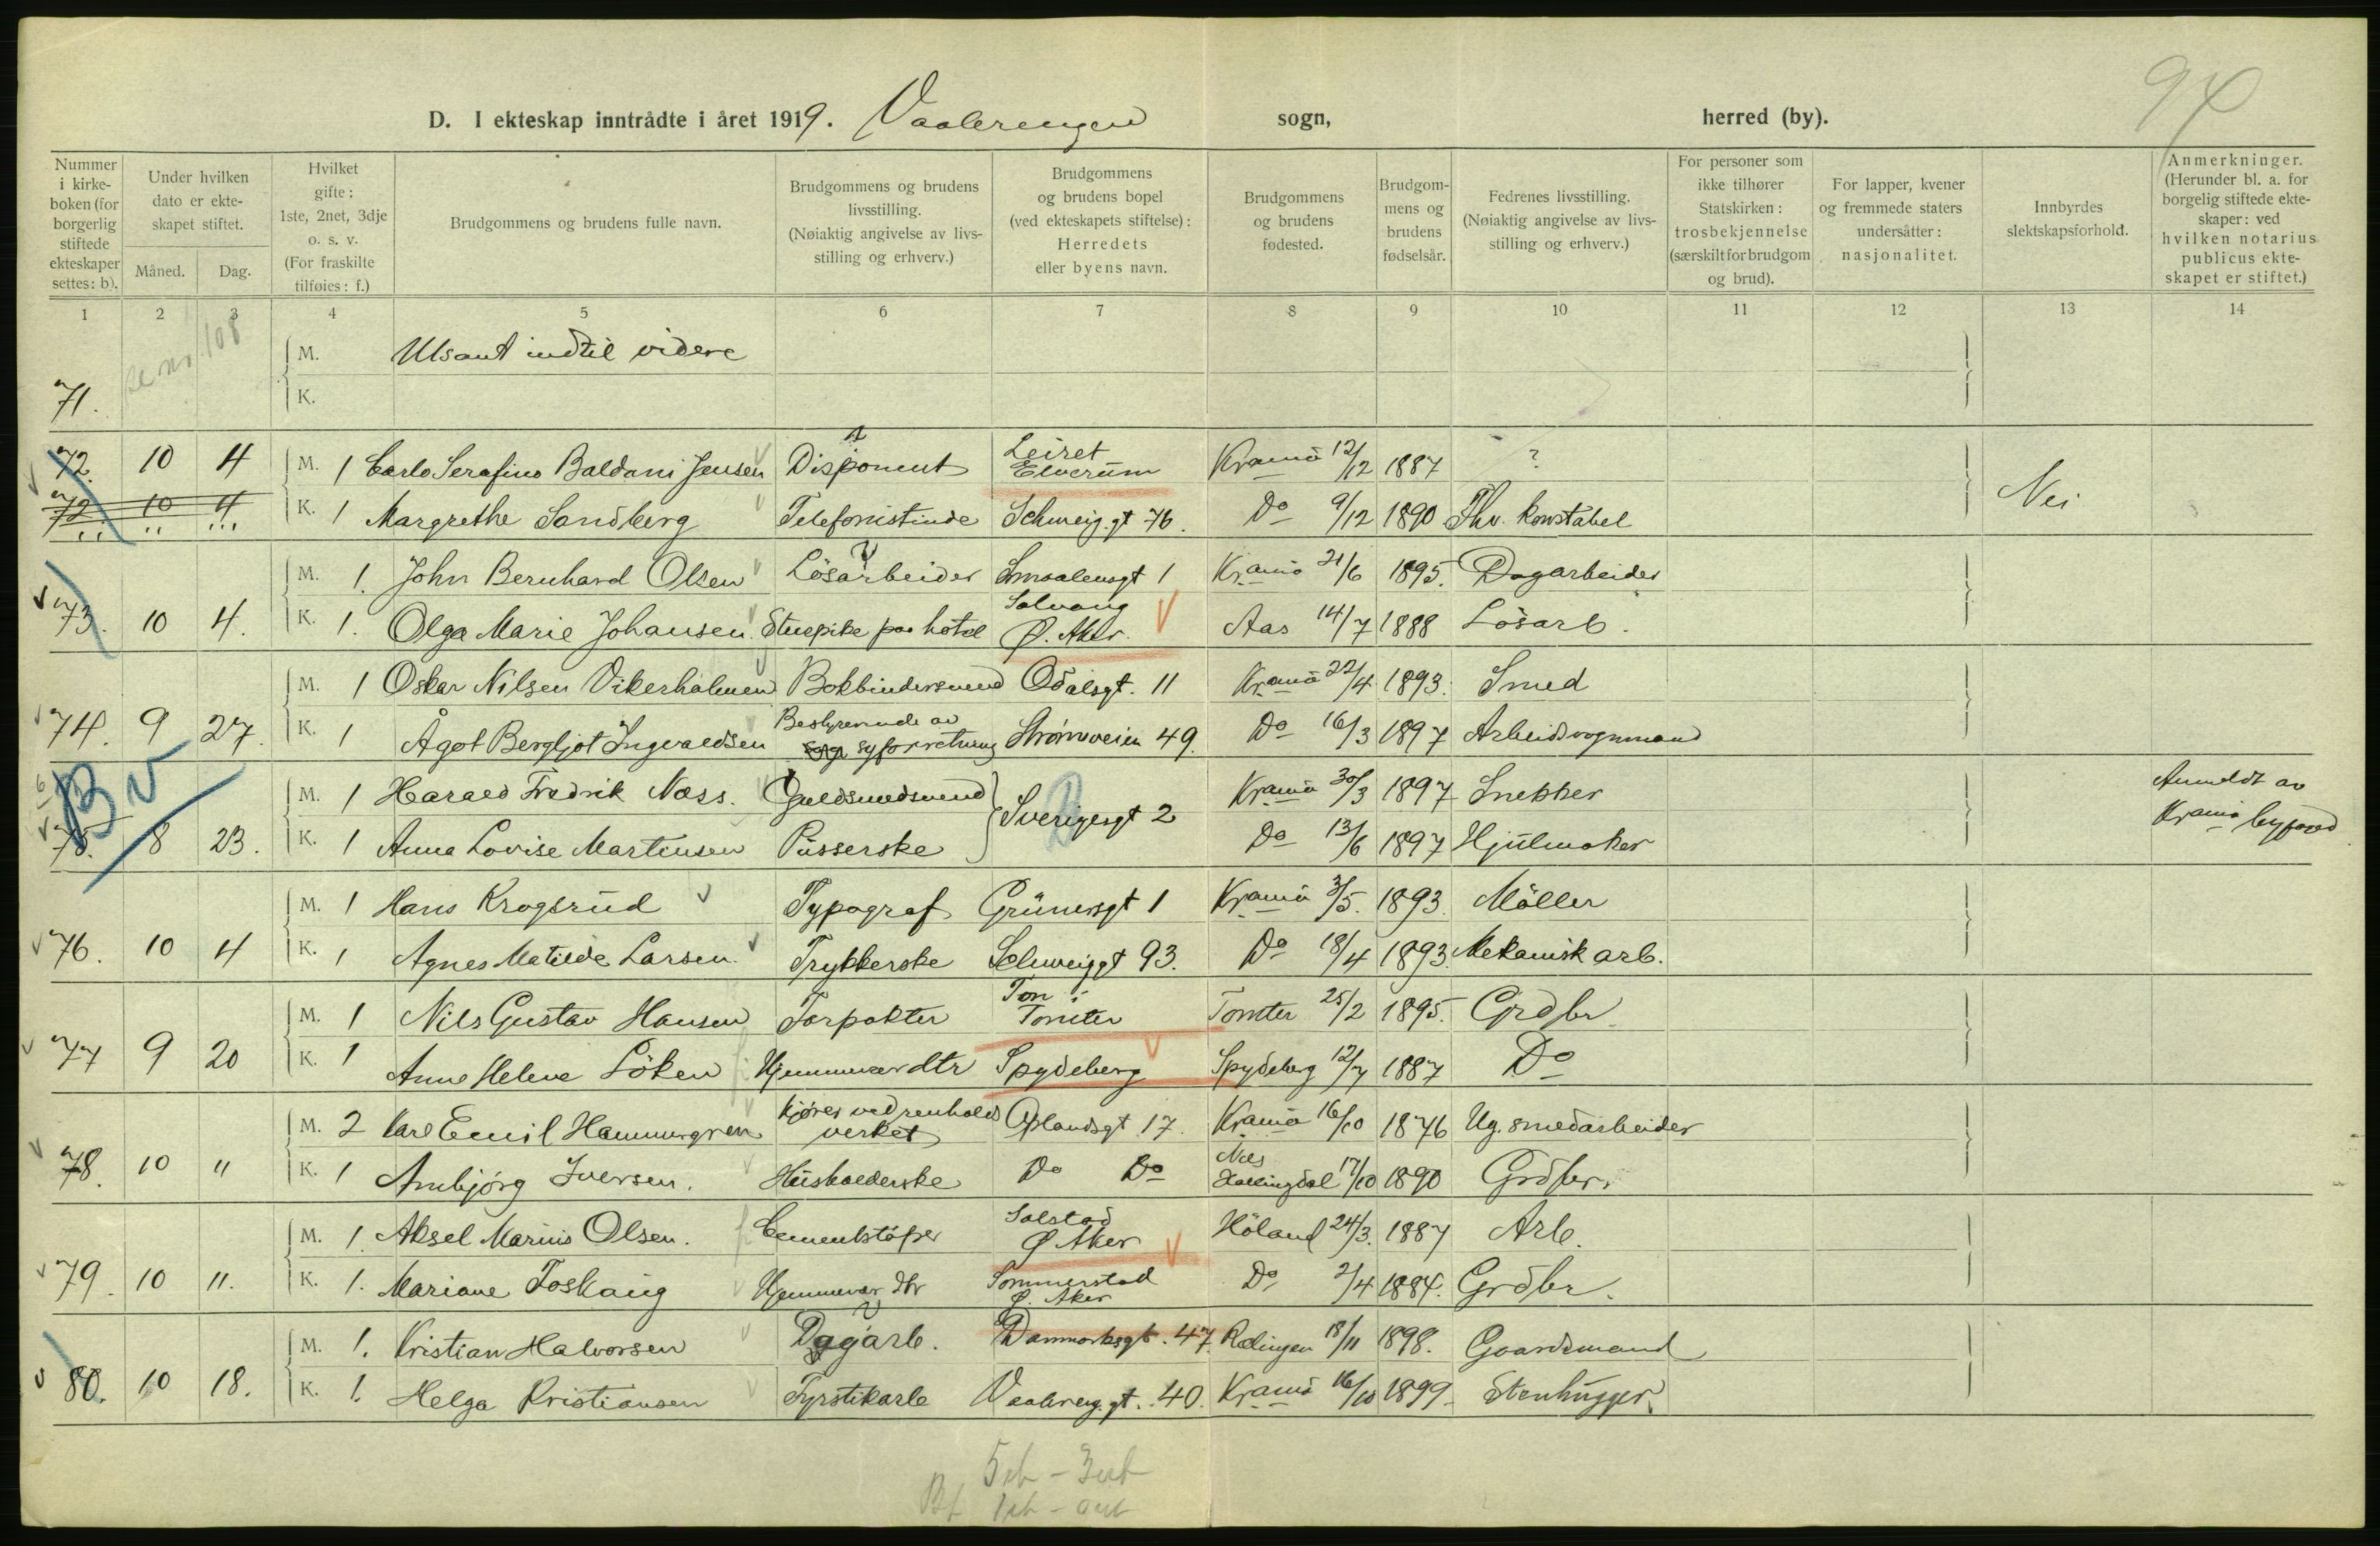 94
D. I ekteskap inntrådte i året 1919. Vaalerengen sogn, herred (by).
Nummer i kirkeboken (for borgerlig stiftede ekteskaper settes: b).
Under hvilken dato er ekteskapet stiftet.
Måned. Dag.
Hvilket gifte: 1ste, 2net, 3dje o. s. v. (For fraskilte tilføies: f.)
Brudgommens og brudens fulle navn.
Brudgommens og brudens livsstilling. (Nøiaktig angivelse av livsstilling og erhverv.)
Brudgommens og brudens bopel (ved ekteskapets stiftelse): Herredets eller byens navn.
Brudgommens og brudens fødested.
Brudgommens og brudens fødselsår.
Fedrenes livsstilling. (Nøiaktig angivelse av livsstilling og erhverv.)
For personer som ikke tilhører Statskirken: trosbekjennelse (særskilt for brudgom og brud).
For lapper, kvener og fremmede staters undersåtter: nasjonalitet.
Innbyrdes slektskapsforhold.
Anmerkninger. (Herunder bl. a. for borgelig stiftede ekteskaper: ved hvilken notarius publicus ekteskapet er stiftet.)
1 2 3 4 5 6 7 8 9 10 11 12 13 14
se nr. 108
M. Utsant indtil videre
71. K.
72. 10 4 M. 1 Carlo Serafino Baldani Jensen Disponent Leiret Elverum Kr.ania 12/12 1887 ?
72 10 4 K. 1 Margrethe Sandberg Telefonistinde Schweig.gt 76. Do 9/12 1890 Fhv. konstabel Nei
M. 1. John Bernhard Olsen Løsarbeider Smaalensgt 1 Kr.ania 21/6 1895. Dagarbeider
73. 10 4. K. 1. Olga Marie Johansen. Stuepike paa hotel Solvang Ø. Aker. Aas 14/7 1888 Løsarb.
M. 1 Oskar Nilsen Vikerholmen Bokbindersvend Odalsgt. 11 Kr.ania 22/4 1893. Smed
74. 9 27. K. 1 Ågot Bergljot Ingvaldsen Bestyrerinde av syforretning Strømsveien 49. Do 16/3 1897 Arbeidsvognmand
B v
M. 1 Harald Fredrik Næss. Guldsmedsvend Sverigesgt 2 Kr.ania 30/3 1897 Snekker Anmeldt av
75. 8 23. K. 1 Anna Lovise Martinsen Pusserske Do 13/6 1897 Hjulmaker Kr.ania byfoged
M. 1 Hans Krogsrud Typograf Grünersgt 1 Kr.ania 3/5. 1893. Møller
76. 10 4 K. 1 Agnes Matilde Larsen. Trykkerske Schweiggt 93. Do 18/4 1893. Mekanisk arb.
M. 1 Nils Gustav Hansen Forpakter Ton i Tomter Tomter 25/2 1895. Grdbr
77 9 20 K. 1 Anne Helene Løken Hjemmevær dtr Spydeberg Spydeberg 12/7 1887 Do
M. 2 Karl Emil Hammergren Kjører ved renholdsverket Oplandsgt 17. Kr.ania 16/10 1876 Ug. smedarbeider
78. 10 11 K. 1 Arnbjørg Iversen. Husholderske Do Do Næs Hallingdal 17/10 1890 Grdbr.
M. 1. Aksel Marius Olsen. Cementstøper Solstad Ø Aker Høland 24/3. 1887 Arb.
79. 10 11. K. 1. Mariane Toskaug Hjemmevær dtr Sommerstad Ø. Aker Do 2/4 1884. Grdbr.
M. 1. Kristian Halvorsen Dagarb. Danmarksgt. 47. Rælingen 18/11 1898. Gaardsmand
80. 10 18. K. 1. Helga Kristiansen Fyrstikarb Vaalereng.gt. 40. Kr.ania 16/10 1899. Stenhugger.